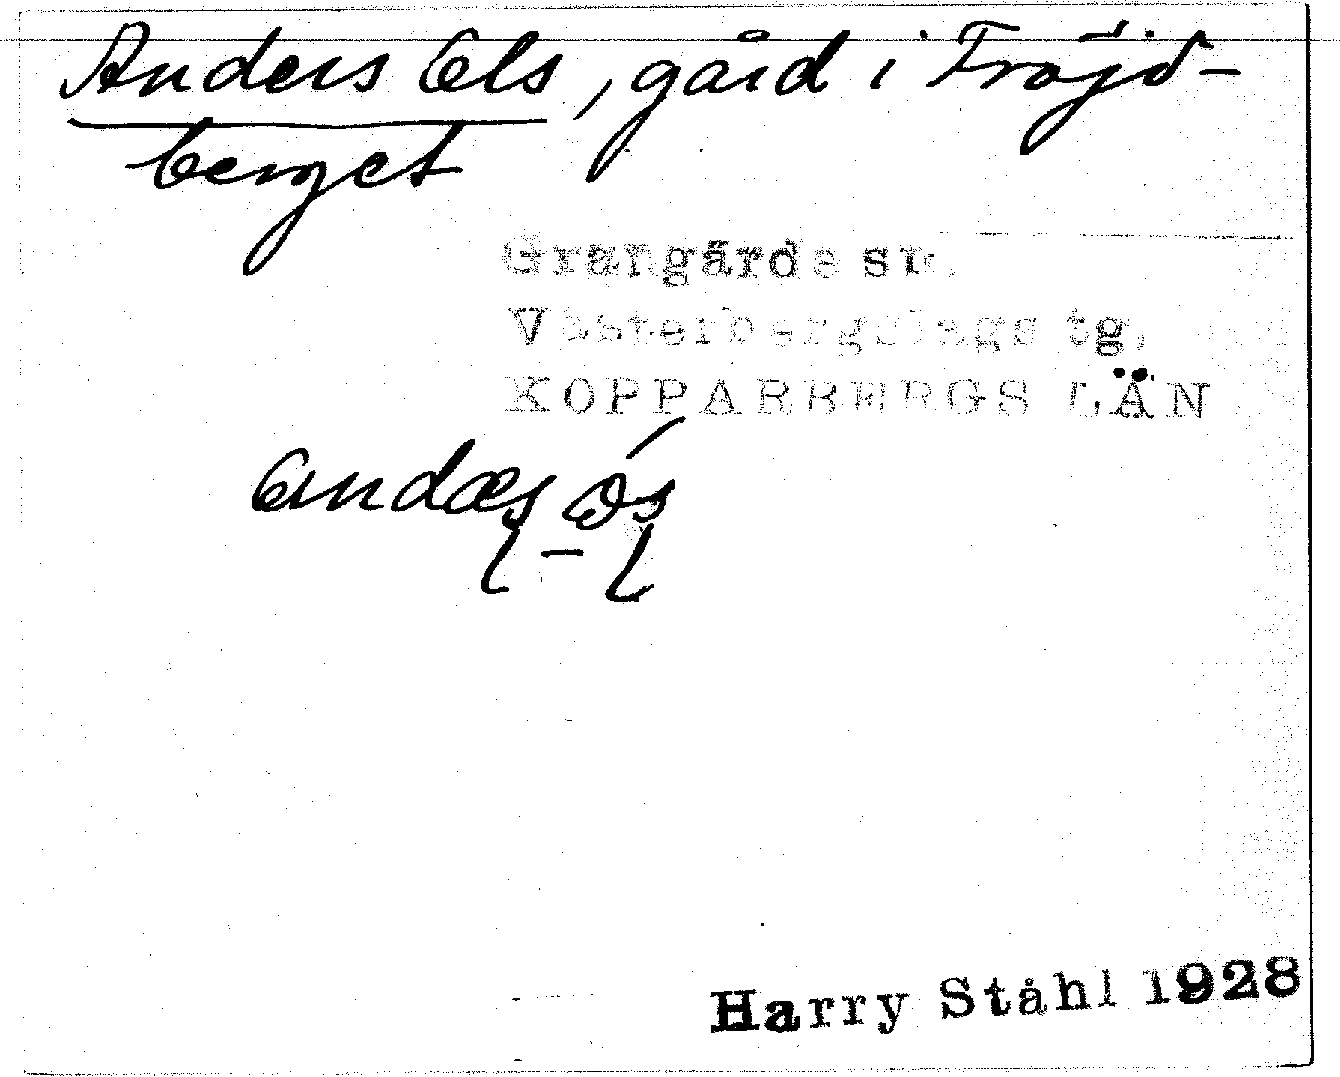 Anders Ols, gård i Fröjd-
berget
Grangärde sn.
Västerbergslags tg.
KOPPARBERGS LÄN
Harry Ståhl 1928